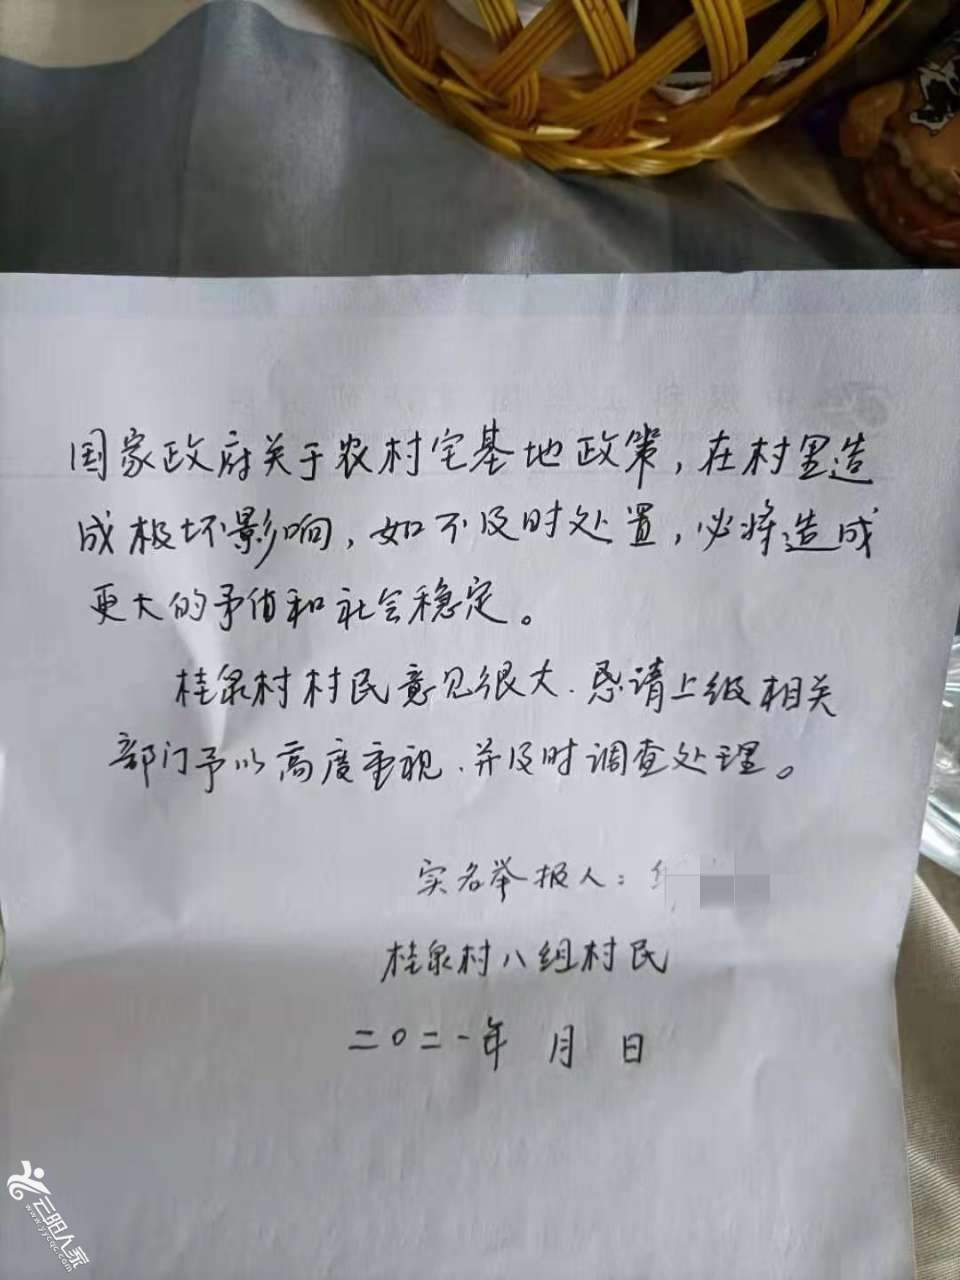 国家政府关于农村宅基地政策，在村里造
成极坏影响，如不及时处置，必将造成
更大的矛盾和社会稳定。
桂泉村村民意见很大.恳请上级相关
部门予以高度重视.并及时调查处理。
实名举报人：
桂泉村八组村民
二〇二一年 月 日
云阳人家
www.yycqc.com